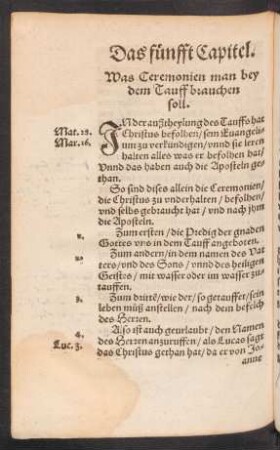 Das fünfft Capitel.
Was Ceremonien man bey
dem Tauff brauchen
soll.
Mat. 28.
Mar. 16.
IN der außtheylung des Tauffs hat
Christus befolhen / sein Euangeli-
um zu verkündigen / vnnd sie leren
halten alles was er befolhen hat /
Vnnd das haben auch die Aposteln ge-
than.
So sind dises allein die Ceremonien /
die Christus zu vnderhalten / befolhen /
vnd selbs gebraucht hat / vnd nach jhm
die Aposteln.
1.
Zum ersten / die Predig der gnaden
Gottes vns in dem Tauff angeboten.
2.
Zum andern / in dem namen des Vat-
ters / vnd des Sons / vnnd des heiligen
Geistes / mit wasser oder im wasser zu-
tauffen.
3.
Zum dritte / wie der / so getauffet / sein
leben müß anstellen / nach dem befelch
des Herren.
4.
Luc. 3.
Also ist auch geurlaubt / den Namen
des Herren anzuruffen / als Lucas sagt
das Christus gethan hat / da er von Jo-
anne